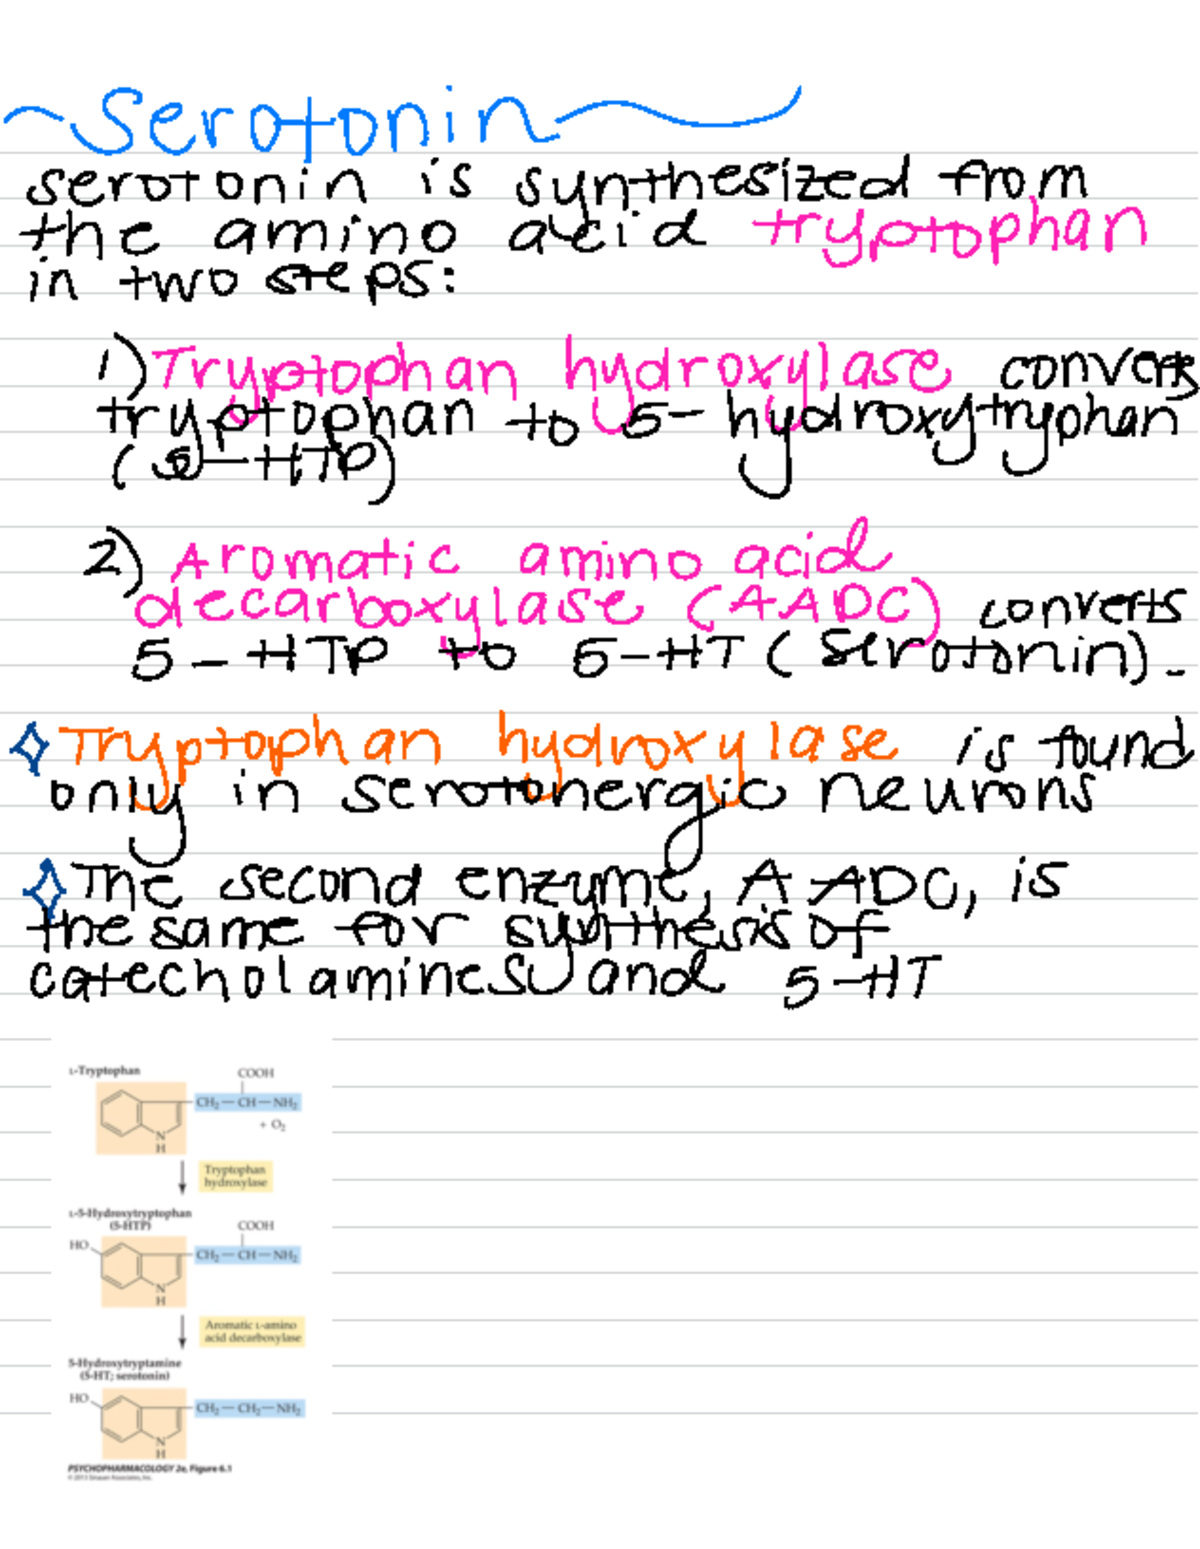 Serotonin
serotonin is synthesized from
the amino acid tryptophan
in two steps:
1) Tryptophan hydroxylase converts
tryptophan to 5-hydroxytryphan
(5-HTP)
2) Aromatic amino acid
decarboxylase (AADC) converts
5-HTP to 5-HT (serotonin).
Tryptophan hydroxylase is found
only in serotonergic neurons
The second enzyme, AADC, is
the same for synthesis of
catecholamines and 5-HT
L-Tryptophan
COOH
CH2—CH—NH2
+ O2
N
H
Tryptophan
hydroxylase
L-5-Hydroxytryptophan
(5-HTP)
COOH
HO
CH2—CH—NH2
N
H
Aromatic L-amino
acid decarboxylase
5-Hydroxytryptamine
(5-HT; serotonin)
HO
CH2—CH2—NH2
N
H
PSYCHOPHARMACOLOGY 2e, Figure 6.1
© 2013 Sinauer Associates, Inc.